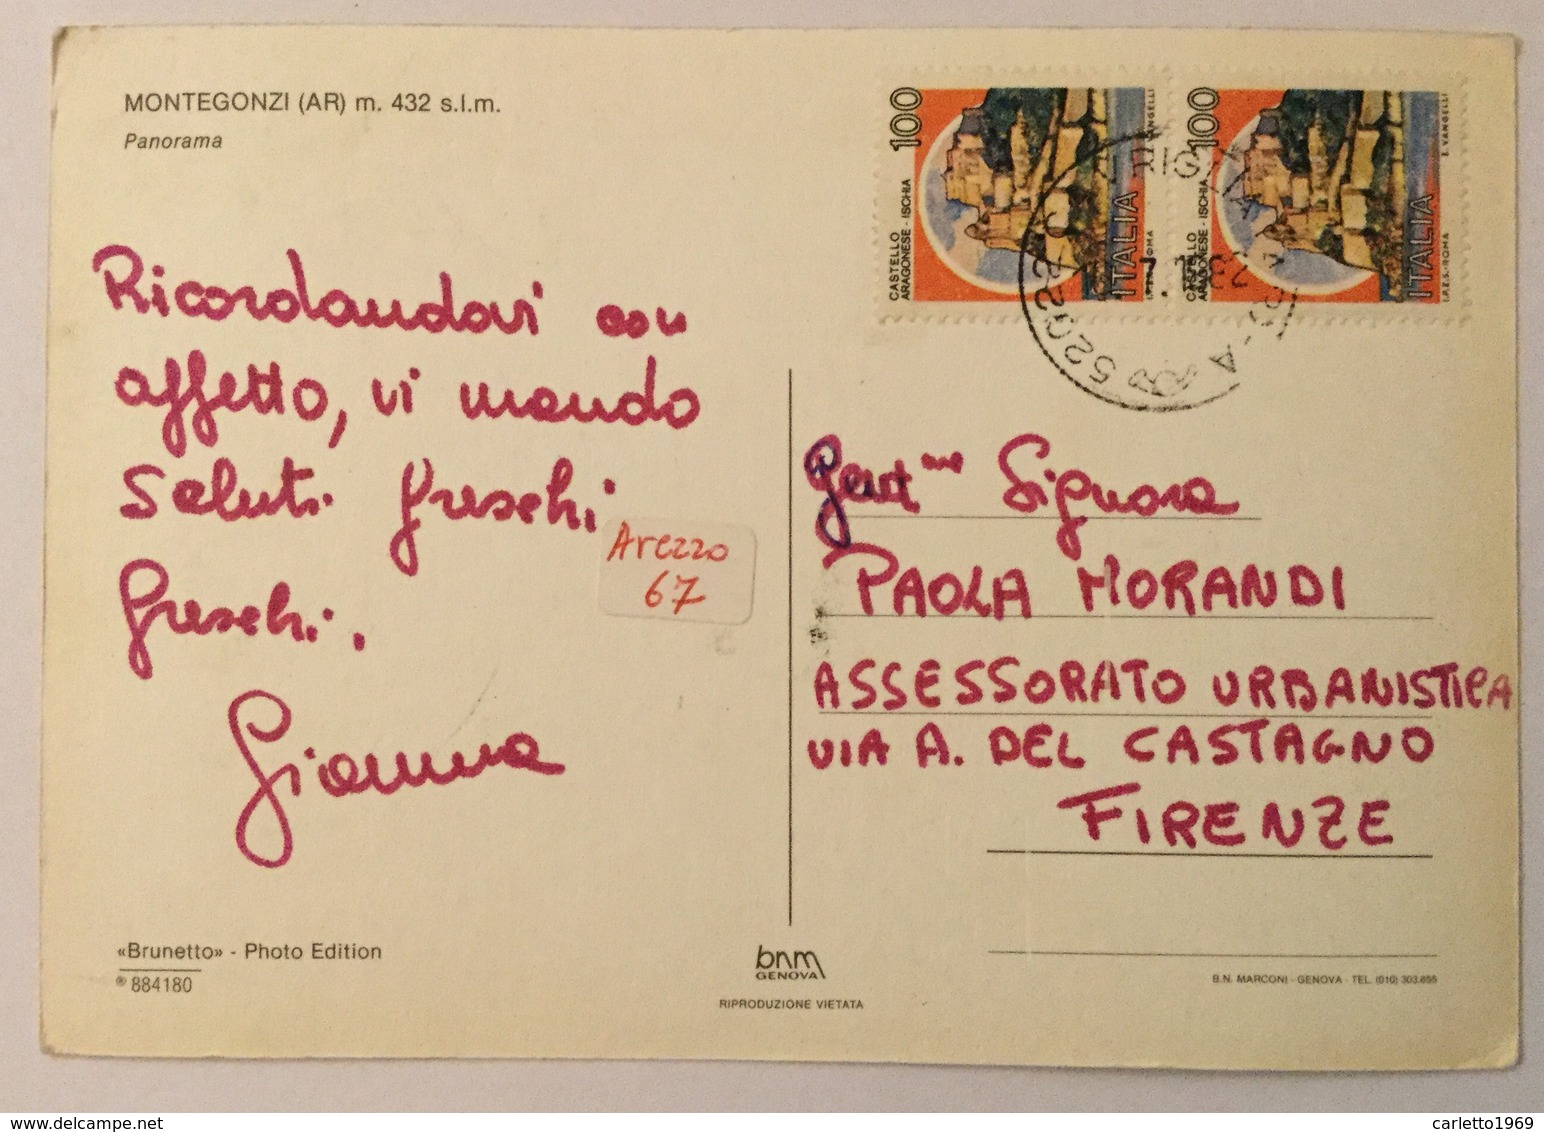 MONTEGONZI (AR) m. 432 s.l.m.
Panorama
100
CASTELLO
ARAGONESE - ISCHIA
ITALIA
I.P.S. ROMA
E. VANGELLI
100
CASTELLO
ARAGONESE - ISCHIA
ITALIA
I.P.S. - ROMA
E. VANGELLI
52022
Ricordandovi con
affetto, vi mando
saluti freschi
freschi.
Gianna
Arezzo
67
Gent me Signora
PAOLA MORANDI
ASSESSORATO URBANISTICA
VIA A. DEL CASTAGNO
FIRENZE
«Brunetto» - Photo Edition
884180
bnm
GENOVA
RIPRODUZIONE VIETATA
B.N. MARCONI - GENOVA - TEL. (010) 303.655
carletto1969